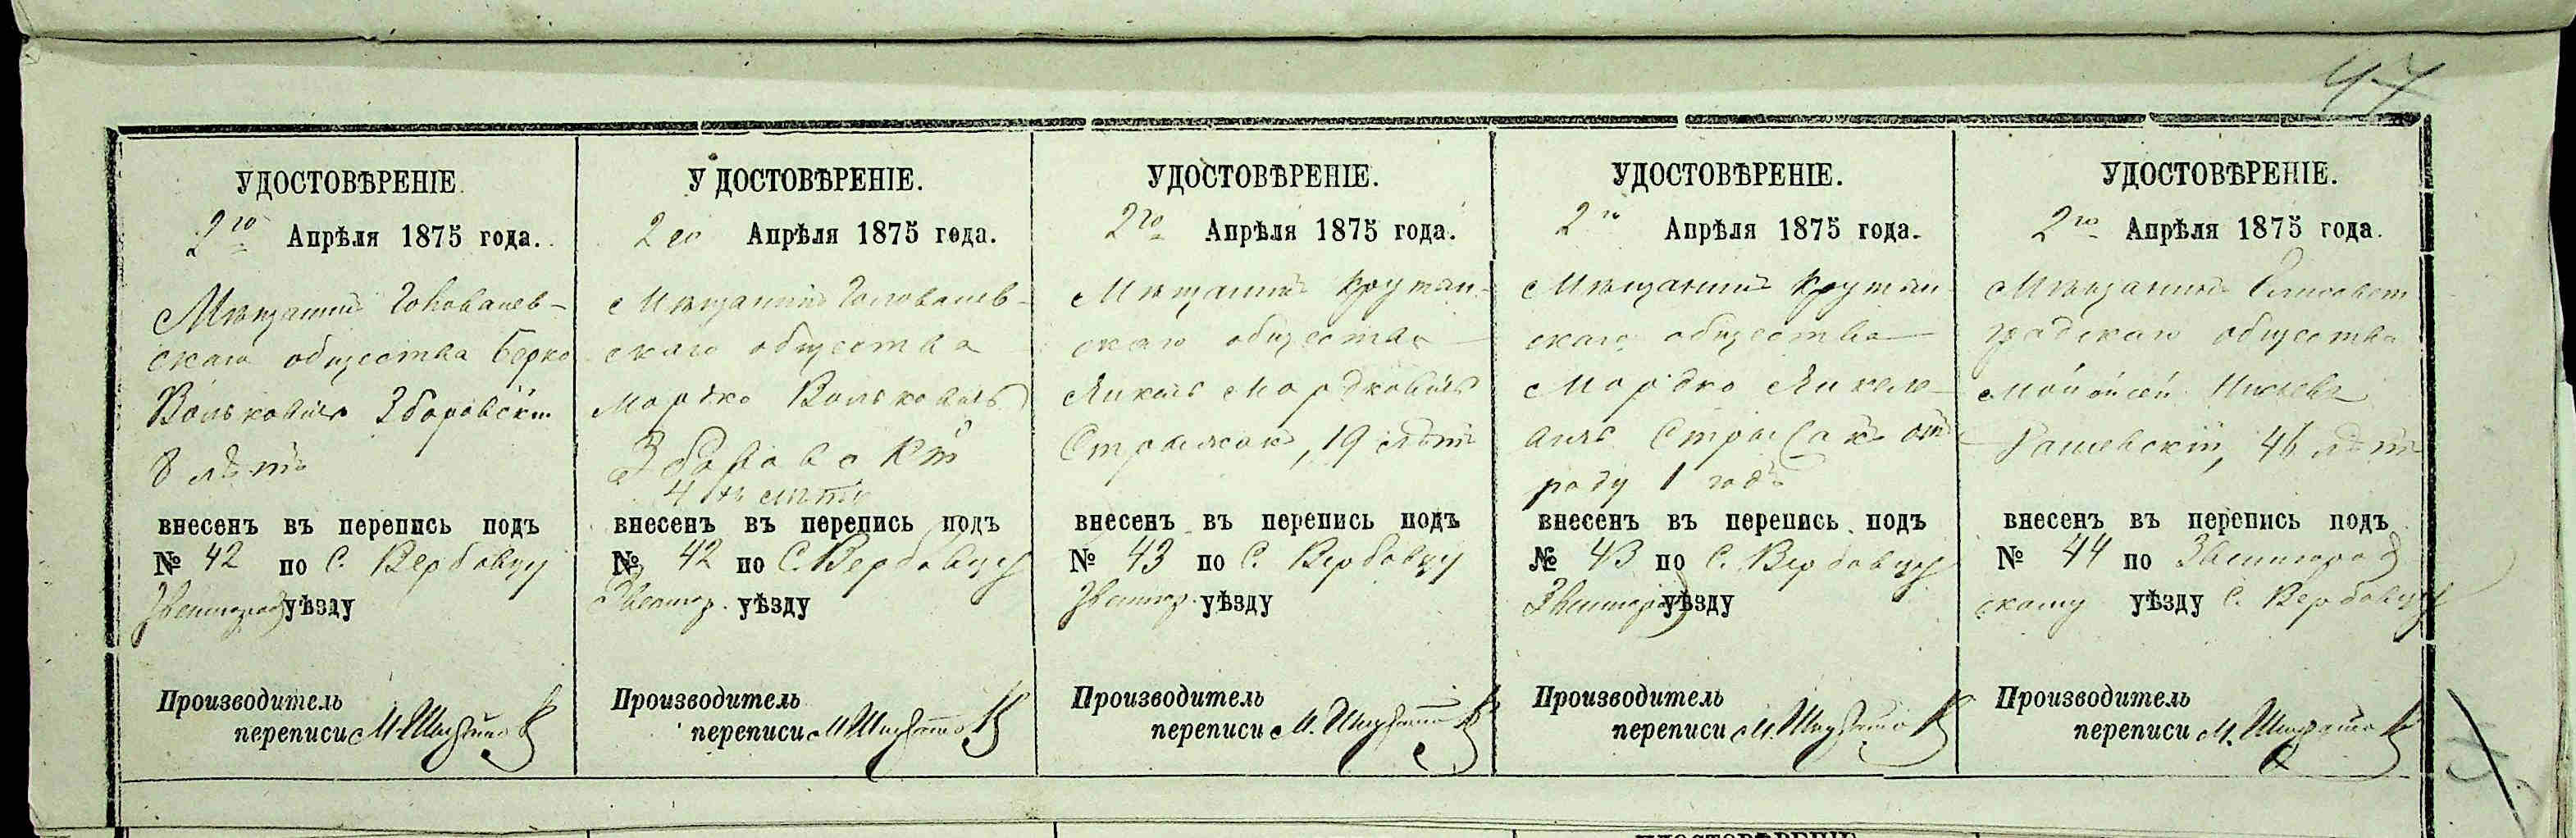 47
УДОСТОВѢРЕНІЕ.
2го Апрѣля 1875 года.
Мѣщанинъ Голованев-
скаго общества Берко
Вольковичъ Зборовскій
8 лѣтъ
внесенъ въ перепись подъ
№ 42 по С. Вербовцу
Звенигород уѣзду
Производитель
переписи М.
У ДОСТОВѢРЕНІЕ.
2го Апрѣля 1875 года.
Мѣщанинъ Голованев-
скаго общества
Мордко Вольковичъ
Зборовскій
4 хъ лѣтъ
внесенъ въ перепись подъ
№ 42 по С. Вербовцу
Звенигор. уѣзду
Производитель
переписи М.
УДОСТОВѢРЕНІЕ.
2го Апрѣля 1875 года.
Мѣщанинъ Крутян-
скаго общества
Янкель Мордковичъ
19 лѣтъ
внесенъ въ перепись подъ
№ 43 по С. Вербовцу
Звенигор. уѣзду
Производитель
переписи М.
УДОСТОВѢРЕНІЕ.
2го Апрѣля 1875 года.
Мѣщанинъ Крутян-
скаго общества
Мордко Янкеле-
вичъ отъ
роду 1 годъ
внесенъ въ перепись подъ
№ 43 по С. Вербовцу
Звенигород уѣзду
Производитель
переписи М.
УДОСТОВѢРЕНІЕ.
2го Апрѣля 1875 года.
Мѣщанинъ Елисавет
градскаго общества
Мойсей
Рашевскій, 46 лѣтъ
внесенъ въ перепись подъ
№ 44 по Звенигород
скому уѣзду С. Вербовцу
Производитель
переписи М.